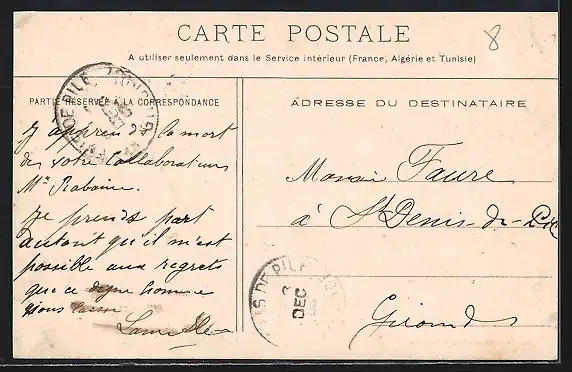 8
CARTE POSTALE
A utiliser seulement dans le Service intérieur (France, Algérie et Tunisie)
PARTIE RÉSERVÉE A LA CORRESPONDANCE
ADRESSE DU DESTINATAIRE
J'apprends la mort
de votre collaborateur
Mr Rabaine.
Je prends part
autant qu'il m'est
possible aux regrets
que ce digne homme
vous laisse
Monsieur Faure
à St Denis-de-Pile
Gironde
DE PILE
DE PILE
DEC